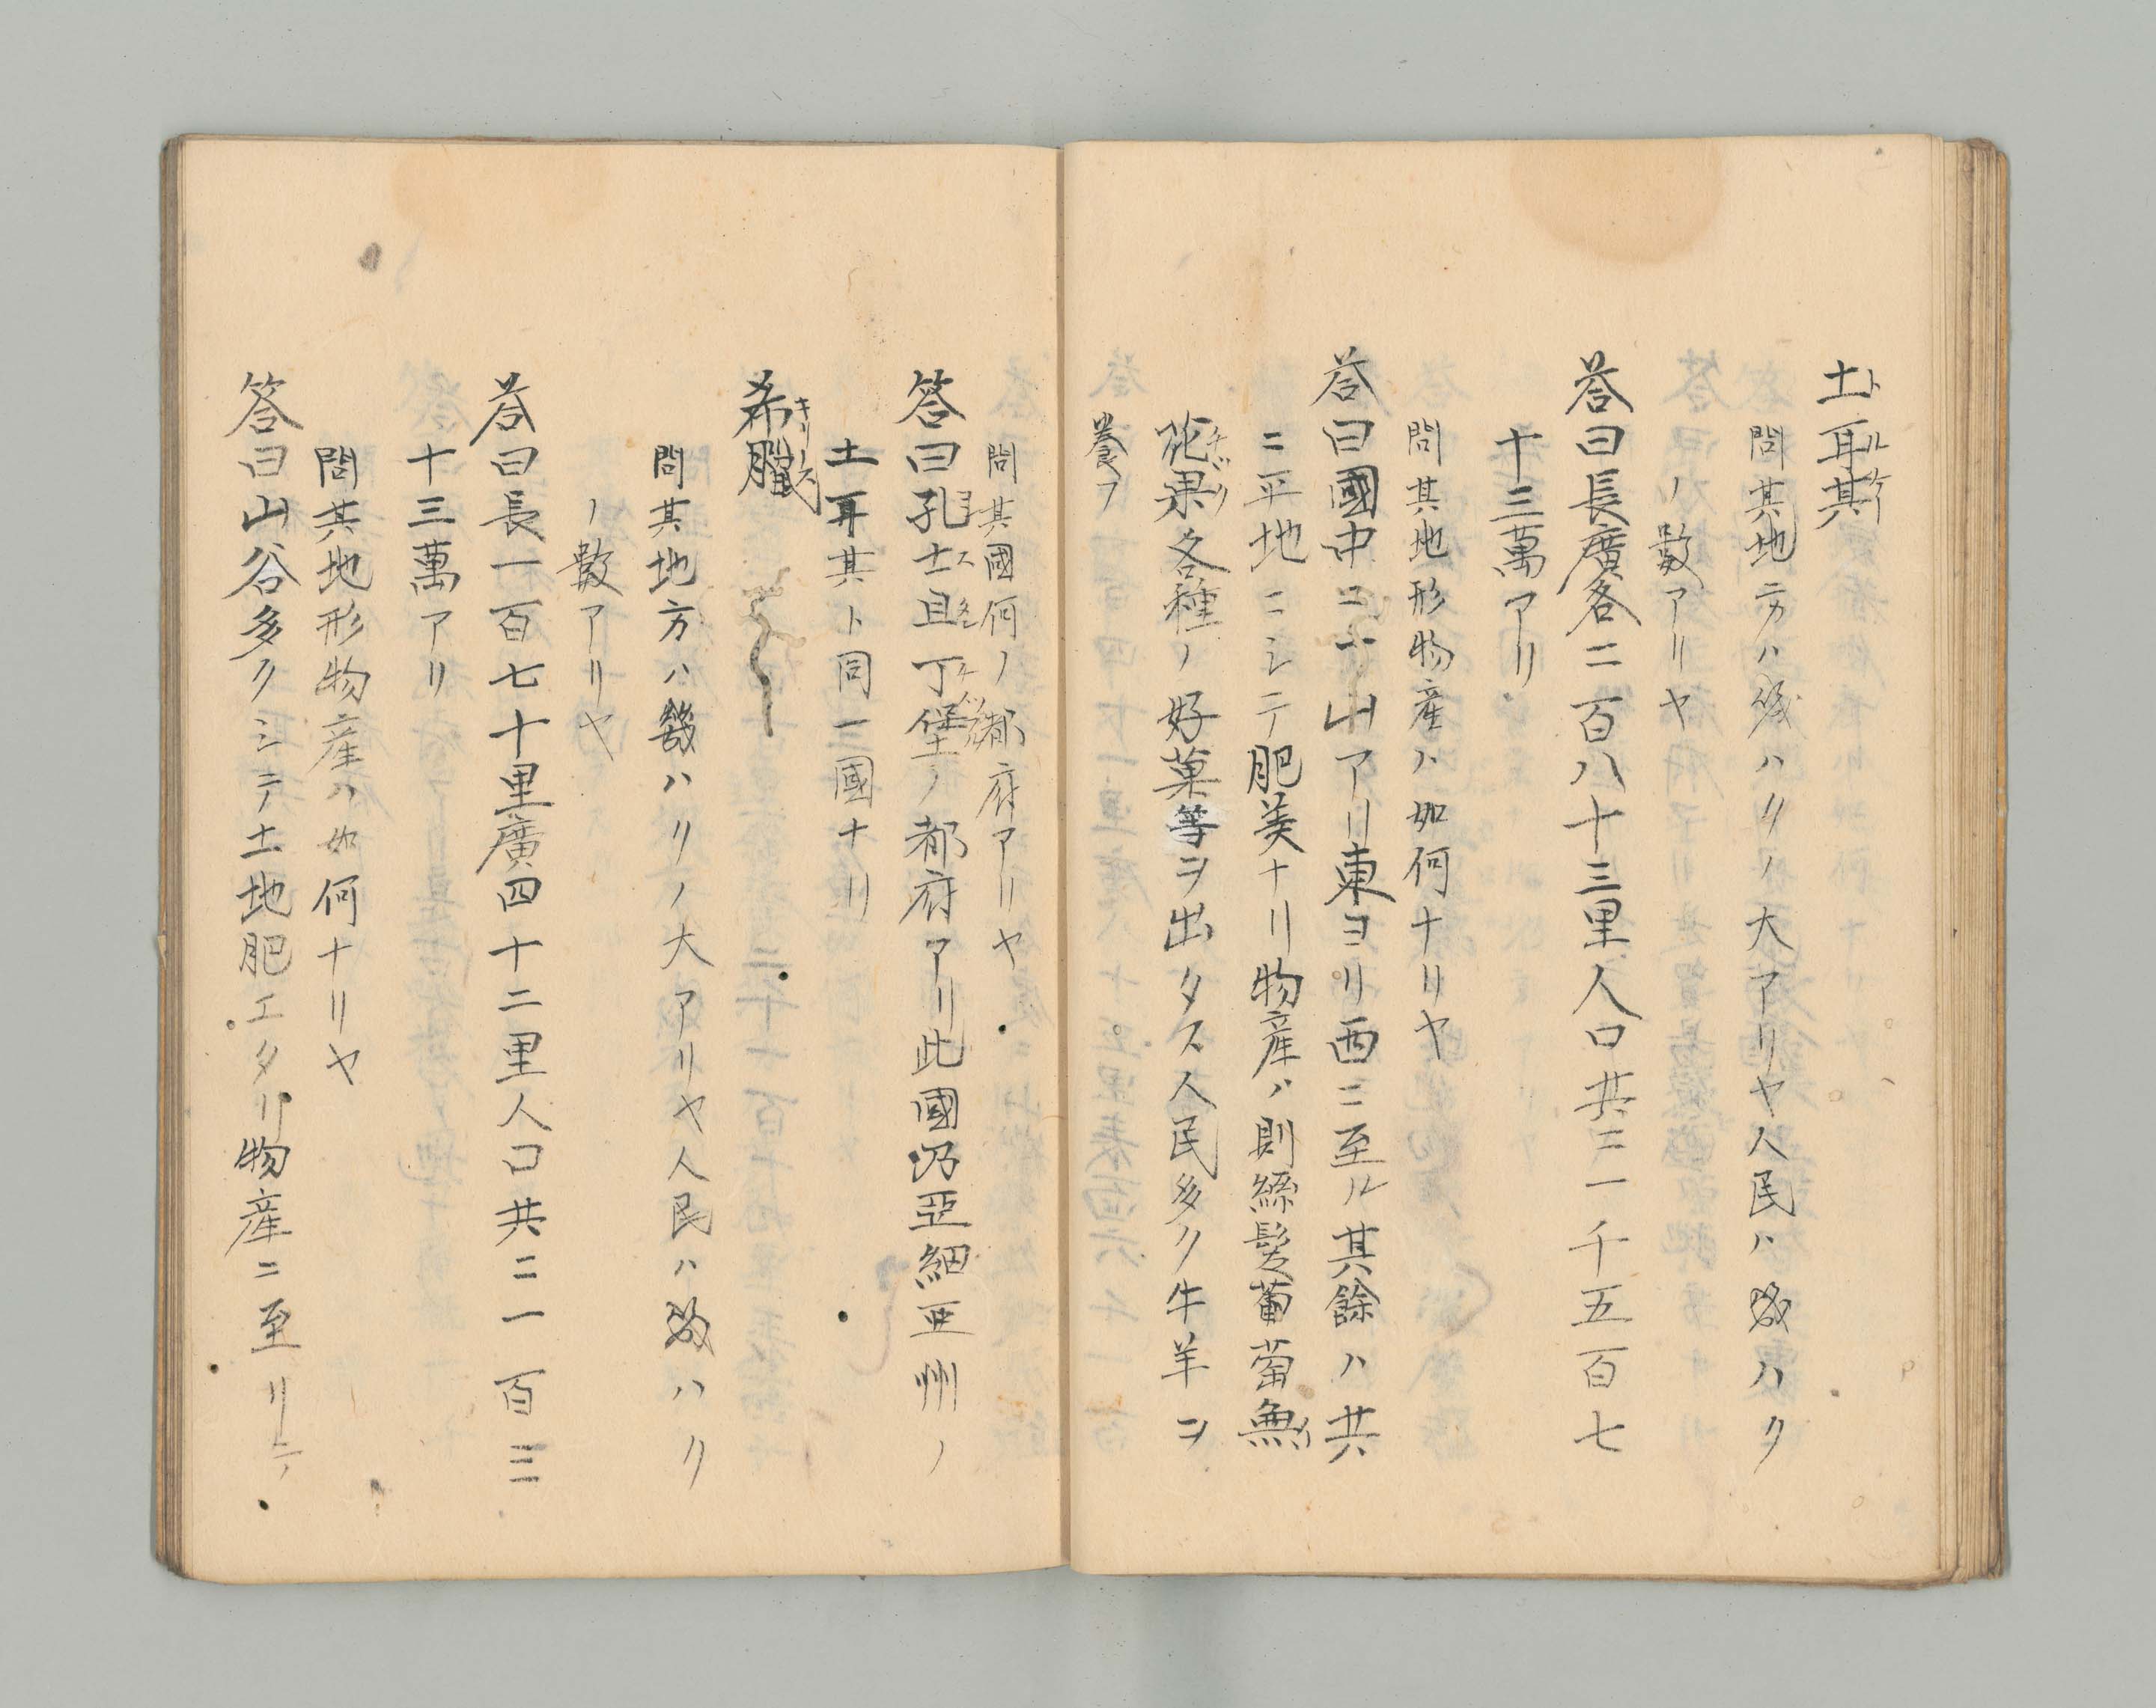 土耳其
問其地方ハ幾ハクノ大アリヤ人民ハ幾ハク
ノ數アリヤ
荅曰長廣各二百八十三里人口共ニ一千五百七
十三萬アリ
問其地形物産ハ如何ナリヤ
荅曰國中ニ一山アリ東ヨリ西ニ至ル其餘ハ共
ニ平地ニシテ肥美ナリ物産ハ則絲髮葡萄無
花果各種ノ好菓等ヲ出タス人民多ク牛羊ヲ
養フ
問其國何ノ都府アリヤ
答曰孔士且丁堡ノ都府アリ此國乃亞細亜州ノ
土耳其ト同一國ナリ
希臘
キリース
問其地方ハ幾ハクノ大アリヤ人民ハ幾ハク
ノ數アリヤ
荅曰長一百七十里廣四十二里人口共ニ一百三
十三萬アリ
問其地形物産ハ如何ナリヤ
答曰山谷多クシテ土地肥エタリ物産ニ至リテ